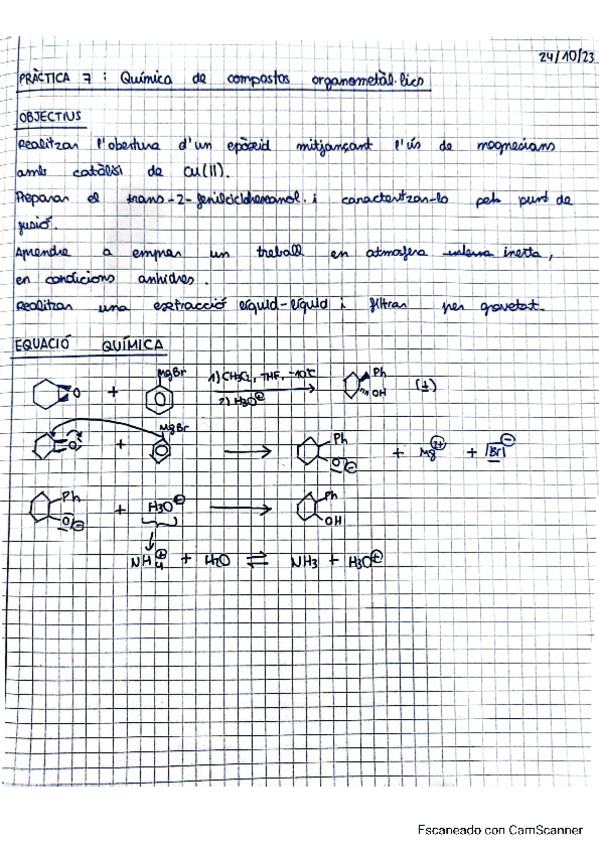 24/10/23
PRÀCTICA 7 : Química de compostos organometàl·lics
OBJECTIUS
Realitzar l'obertura d'un epòxid mitjançant l'ús de magnesians
amb catàlisi de Cu(II).
Preparar el trans-2-fenilciclohexanol. i caracteritzar-lo pel punt de
fusió.
Aprendre a emprar un treball en atmosfera inerta,
en condicions anhidres.
Realitzar una extracció líquid-líquid i filtrar per gravetat.
EQUACIÓ QUÍMICA
O + MgBr 1) , THF, -10°C 2) H3O⊕ Ph OH (±)
O + MgBr Ph O⊖ + Mg 2+ + |Br|⊖
Ph O⊖ + H3O⊕ Ph OH
NH4⊕ + H2O ⇌ NH3 + H3O⊕
Escaneado con CamScanner